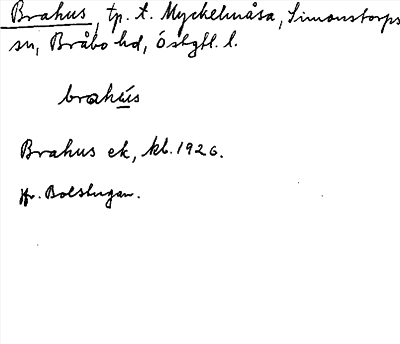 Brahus, tp. t. Myckelmåsa, Simonstorps
sn, Bråbo hd, Östgtl. l.
brahu̇́s
Brahus ek, kb. 1926.
Jfr. Bolstugan.